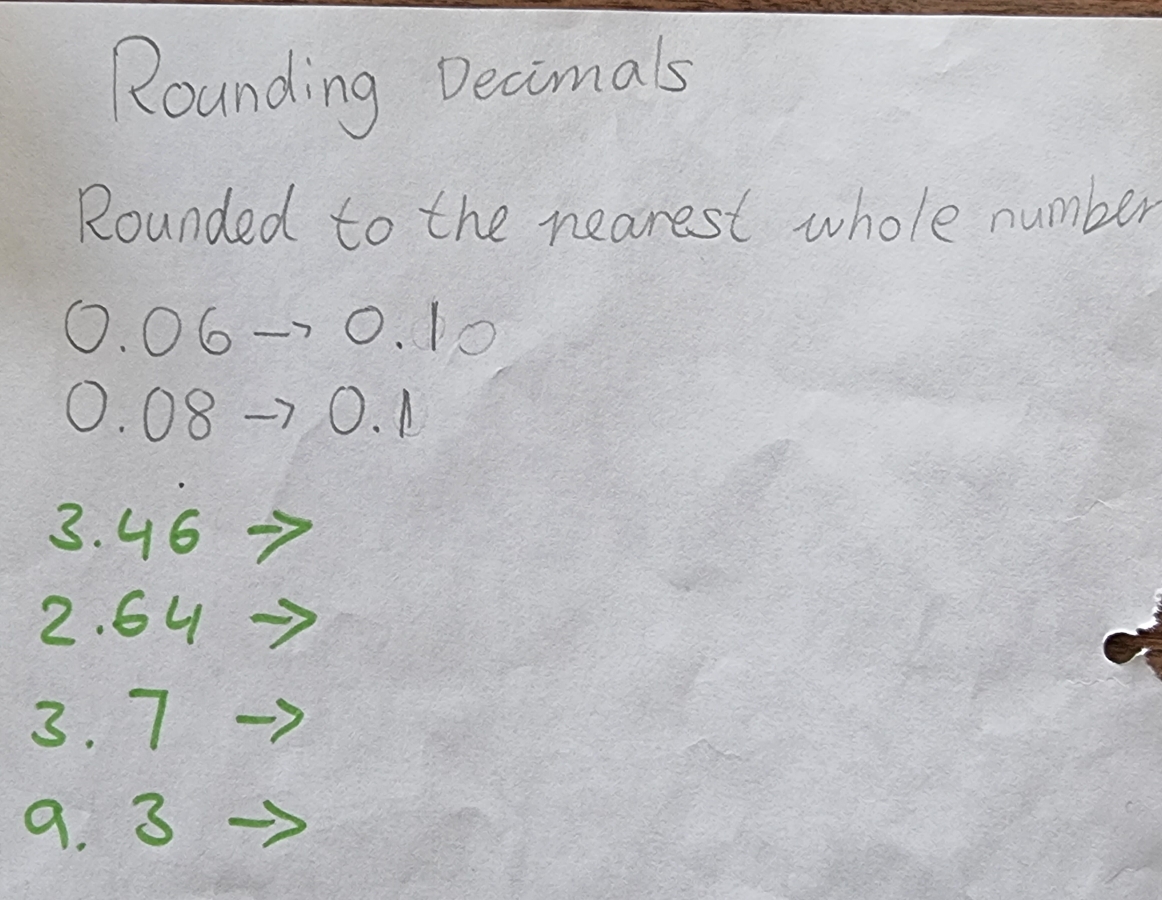 Rounding Decimals
Rounded to the nearest whole number
0.06 → 0.10
0.08 → 0.1
3.46 →
2.64 →
3.7 →
9.3 →